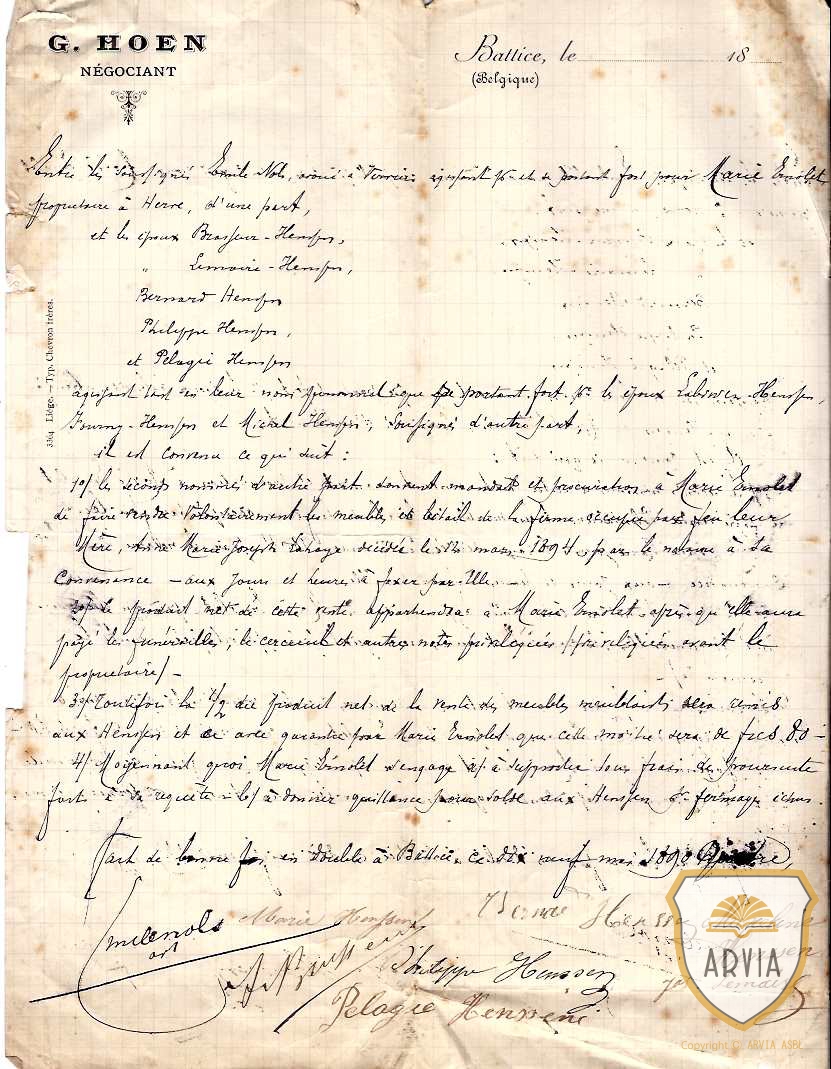 G. HOEN
NÉGOCIANT
Battice, le 18
(Belgique)
Entre les soussignés Emile Nols, avoué à Verviers agissant pr et se portant fort pour Marie Ernolet
propriétaire à Herve, d'une part,
et les époux Brasseur-Henssen,
" Lemaire-Henssen,
Bernard Henssen
Philippe Henssen,
et Pelagie Henssen
agissant tant en leur nom personnel que se portant fort pr les époux -Henssen,
Fourny-Henssen et Michel Henssen, soussignés d'autre part,
il est convenu ce qui suit :
1o/ les seconds nommés d'autre part donnent mandat et procuration à Marie Ernolet
de faire vendre volontairement les meubles et bétail de la ferme occupée par feu leur
Mère, Anne Marie Joseph Lahaye décédée le 12 mars 1894 par le notaire à sa
Convenance – aux jours et heures à fixer par Elle. –
2o/ Le produit net de cette vente appartiendra à Marie Ernolet après qu'elle aura
payé les funérailles, le cercueil et autres notes privilégiées /privilégiées avant le
propriétaire/ –
3o/ Toutefois la 1/2 du produit net de la vente des meubles meublants sera remis
aux Henssen et ce avec garantie par Marie Ernolet que cette moitié sera de frcs 80 –
4/ Moyennant quoi, Marie Ernolet s'engage a/ à supporter tous frais de poursuite
faits à sa requête – b/ à donner quittance pour solde aux Henssen pr fermages échus.
Fait de bonne foi en double à Battice, ce dix neuf mai 189
Emile Nols
Marie Henssen
Philippe Henssen
Pelagie Henssen
3364 Liége. — Typ. Chevron frères.
ARVIA
Copyright © ARVIA ASBL